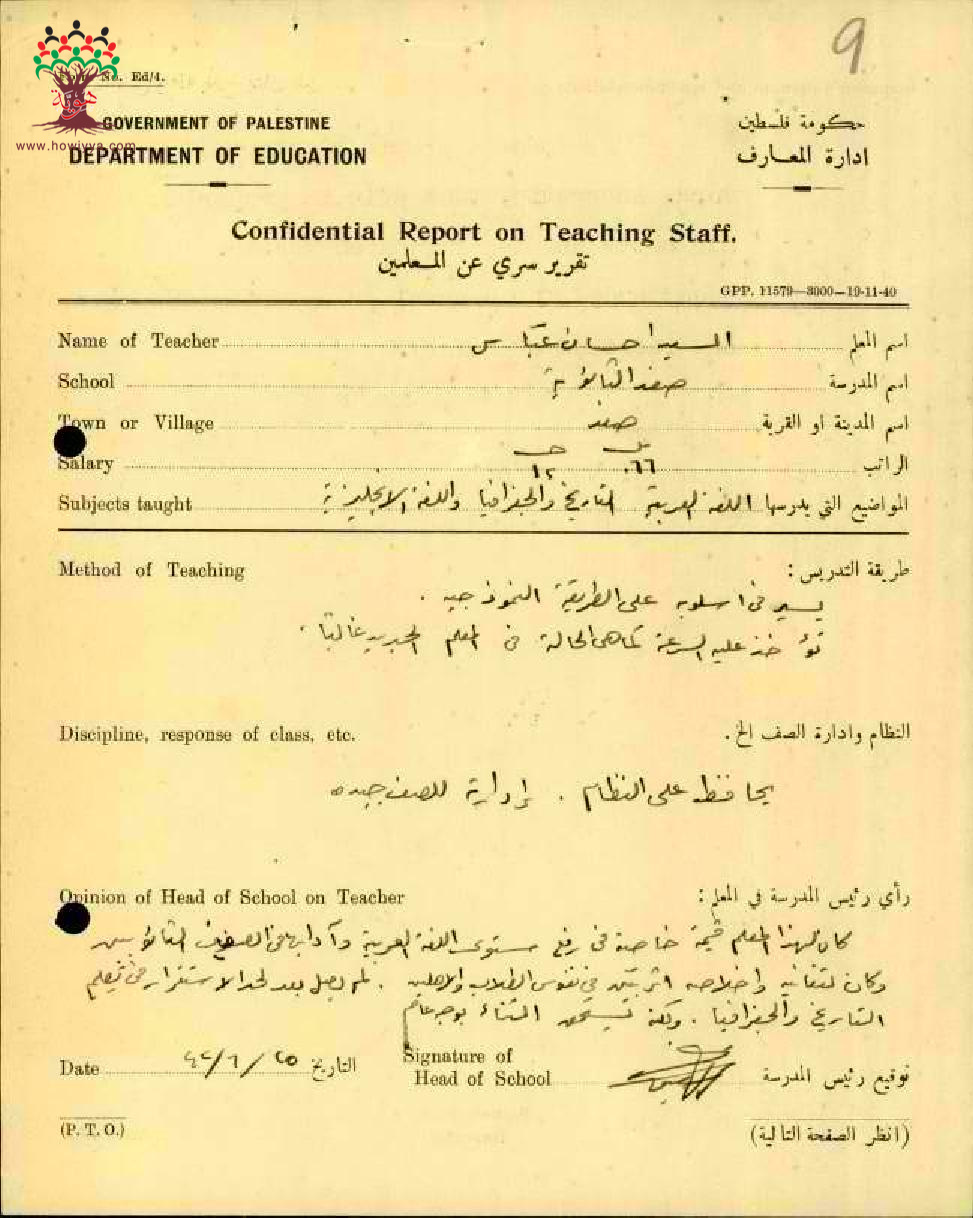 9
Form No. Ed/4.
www.howiyya.com
GOVERNMENT OF PALESTINE حكومة فلسطين
DEPARTMENT OF EDUCATION ادارة المعارف
Confidential Report on Teaching Staff.
تقرير سري عن المعلمين
GPP. 11579—3000—19-11-40
Name of Teacher السيد احسان عباس اسم المعلم
School صفد الثانوية اسم المدرسة
Town or Village صفد اسم المدينة او القرية
مل ج
Salary ٠٦٦ ١٢ الراتب
Subjects taught اللغة العربية التاريخ والجغرافيا واللغة الانجليزية المواضيع التي يدرسها
Method of Teaching طريقة التدريس :
يسير في اسلوبه على الطريقة النموذجيه .
تؤخذ عليه السرعة كما هي الحالة في المعلم الجديد غالبا .
Discipline, response of class, etc. النظام وادارة الصف الخ .
يحافظ على النظام . إدارة للصف جيده
Opinion of Head of School on Teacher رأي رئيس المدرسة في المعلم :
كان لهذا المعلم قيمة خاصة في رفع مستوى اللغة العربية وآدابها في الصفين الثانويين
وكان لتفانيه واخلاصه اثر بيّن في نفوس الطلاب والاهلين . لم يصل بعد لحد الاستقرار في تعليم
التاريخ والجغرافيا . ولكنه يستحق الثناء بوجه عام
Date ٢٥/٦/٤٢ التاريخ
Signature of
Head of School توقيع رئيس المدرسة
(P. T. O.) (انظر الصفحة التالية)